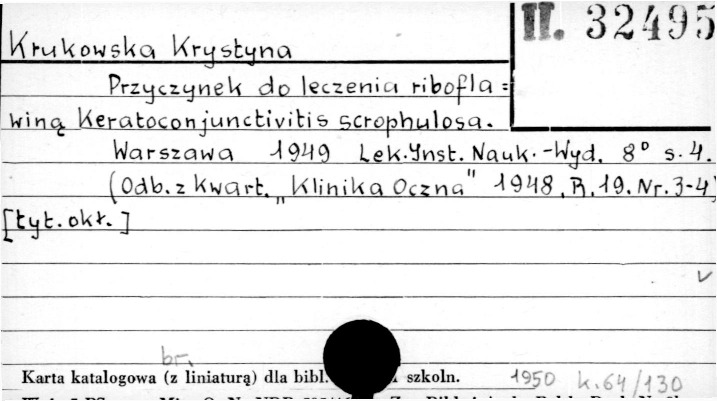 Krukowska Krystyna
II. 32495
Przyczynek do leczenia ribofla=
winą Keratoconjunctivitis scrophulosa.
Warszawa 1949 Lek.Inst.Nauk.-Wyd. 8° s.4.
(Odb. z kwart. "Klinika Oczna" 1948, R.19. Nr.3-4)
[tyt. okł.]
br.
Karta katalogowa (z liniaturą) dla bibl. szkoln.
1950 k.64/130